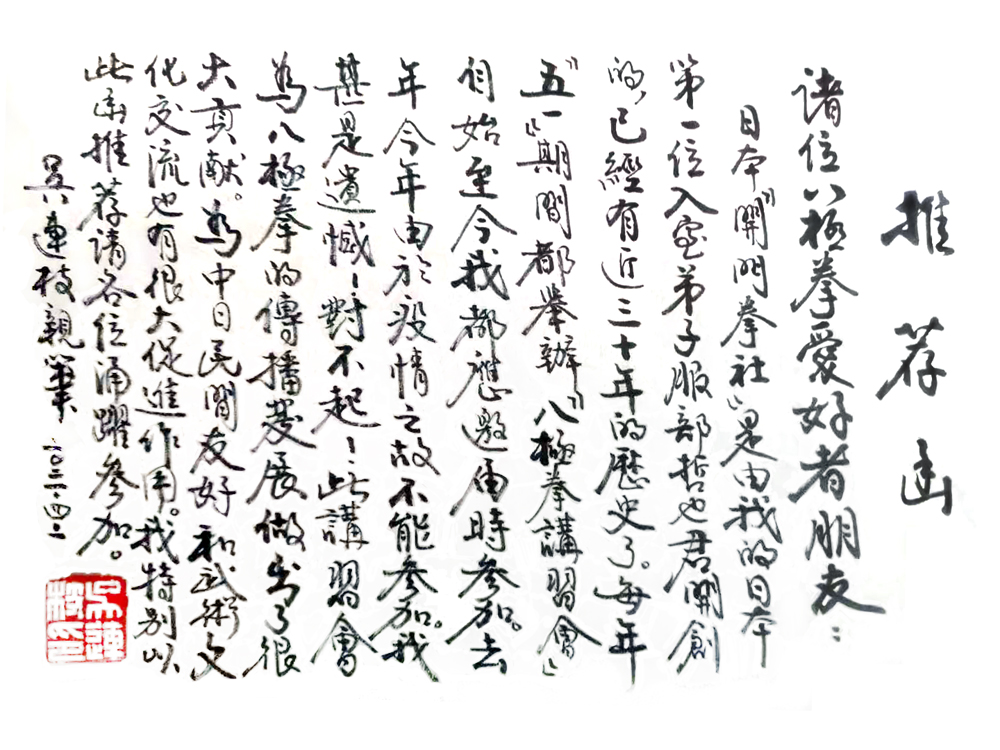 推荐函
諸位八極拳愛好者朋友：
日本“開門拳社”是由我的日本
第一位入室弟子服部哲也君開創
的，已經有近三十年的歷史了。每年
“五一”期間都舉辦“八極拳講習會”
自始至今我都應邀届時參加。去
年今年由於疫情之故不能參加。我
甚是遺憾！對不起！此講習會
為八極拳的傳播發展做出了很
大貢献。為中日民間友好和武術文
化交流也有很大促進作用。我特别以
此函推荐請各位涌躍參加。
吴連枝親筆
吴連枝印